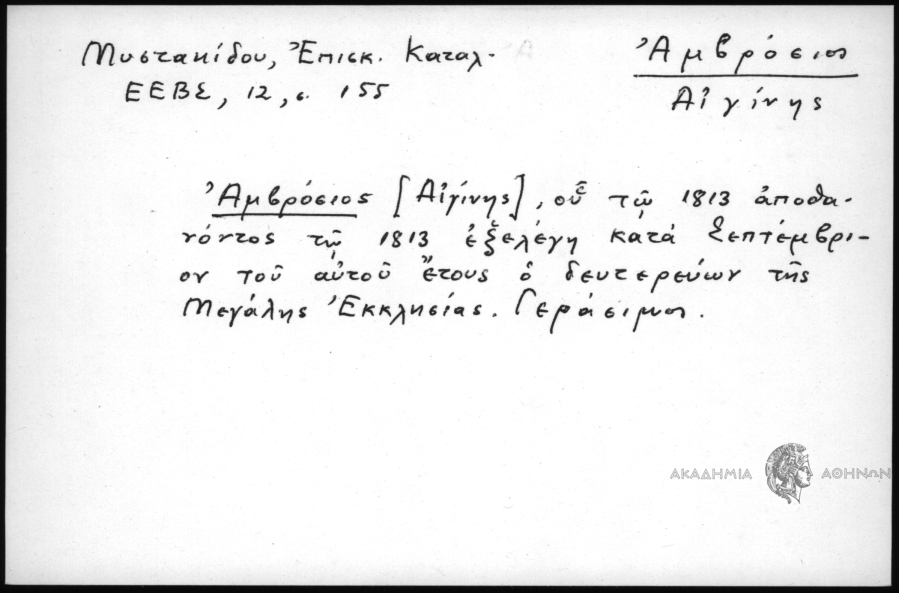 Μυστακίδου, Ἐπισκ. Καταλ.
ΕΕΒΣ, 12, σ. 155
Ἀμβρόσιος
Αἰγίνης
Ἀμβρόσιος [Αἰγίνης], οὗ τῷ 1813 ἀποθα-
νόντος τῷ 1813 ἐξελέγη κατὰ Σεπτέμβρι-
ον τοῦ αὐτοῦ ἔτους ὁ δευτερεύων τῆς
Μεγάλης Ἐκκλησίας. Γεράσιμος.
ΑΚΑΔΗΜΙΑ ΑΘΗΝΩΝ